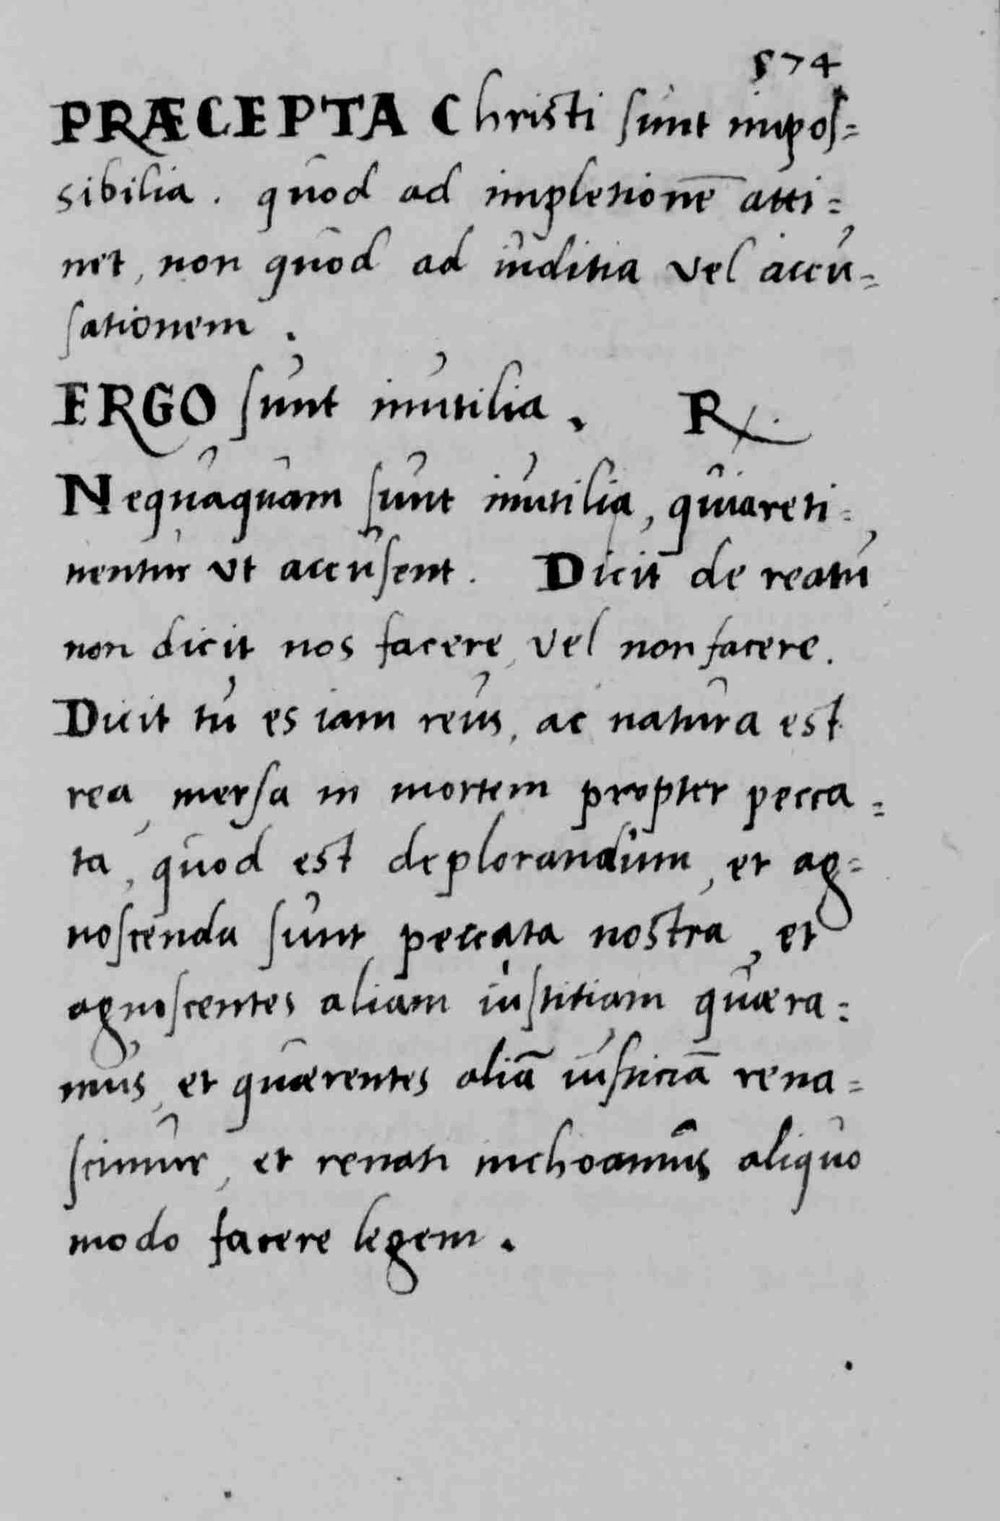 574
PRÆCEPTA Christi sunt impos=
sibilia. quod ad impletionē atti=
net, non quod ad iuditia vel accu=
sationem.
ERGO sunt inutilia. R.
Nequaquam sunt inutilia, quia reti=
nentur ut accusent. Dicit de reatu
non dicit nos facere, vel non facere.
Dicit tu es iam reus, ac natura est
rea, mersa in mortem propter pecca=
ta, quod est deplorandum, et ag=
noscenda sunt peccata nostra, et
agnoscentes aliam iustitiam quæra=
mus, et quærentes aliā iusticiā rena=
scimur, et renati inchoamus aliquo
modo facere legem.